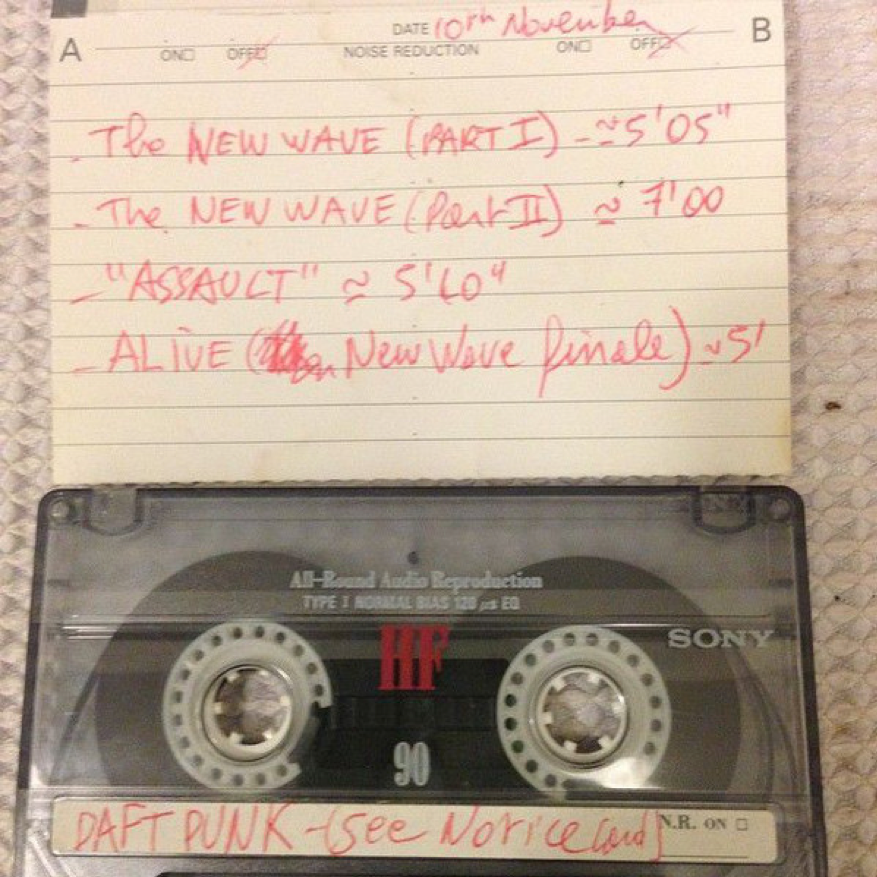 DATE 10th November
A ON OFF NOISE REDUCTION ON OFF B
- The NEW WAVE (PART I) - ≃ 5'05"
- The NEW WAVE (Part II) ≃ 7'00
- "ASSAULT" ≃ 5'10"
- ALiVE (New Wave finale) ~ 5'
All-Round Audio Reproduction
TYPE I NORMAL BIAS 120 µs EQ
HF
SONY
90
DAFT PUNK - (See Notice Card)
N.R. ON